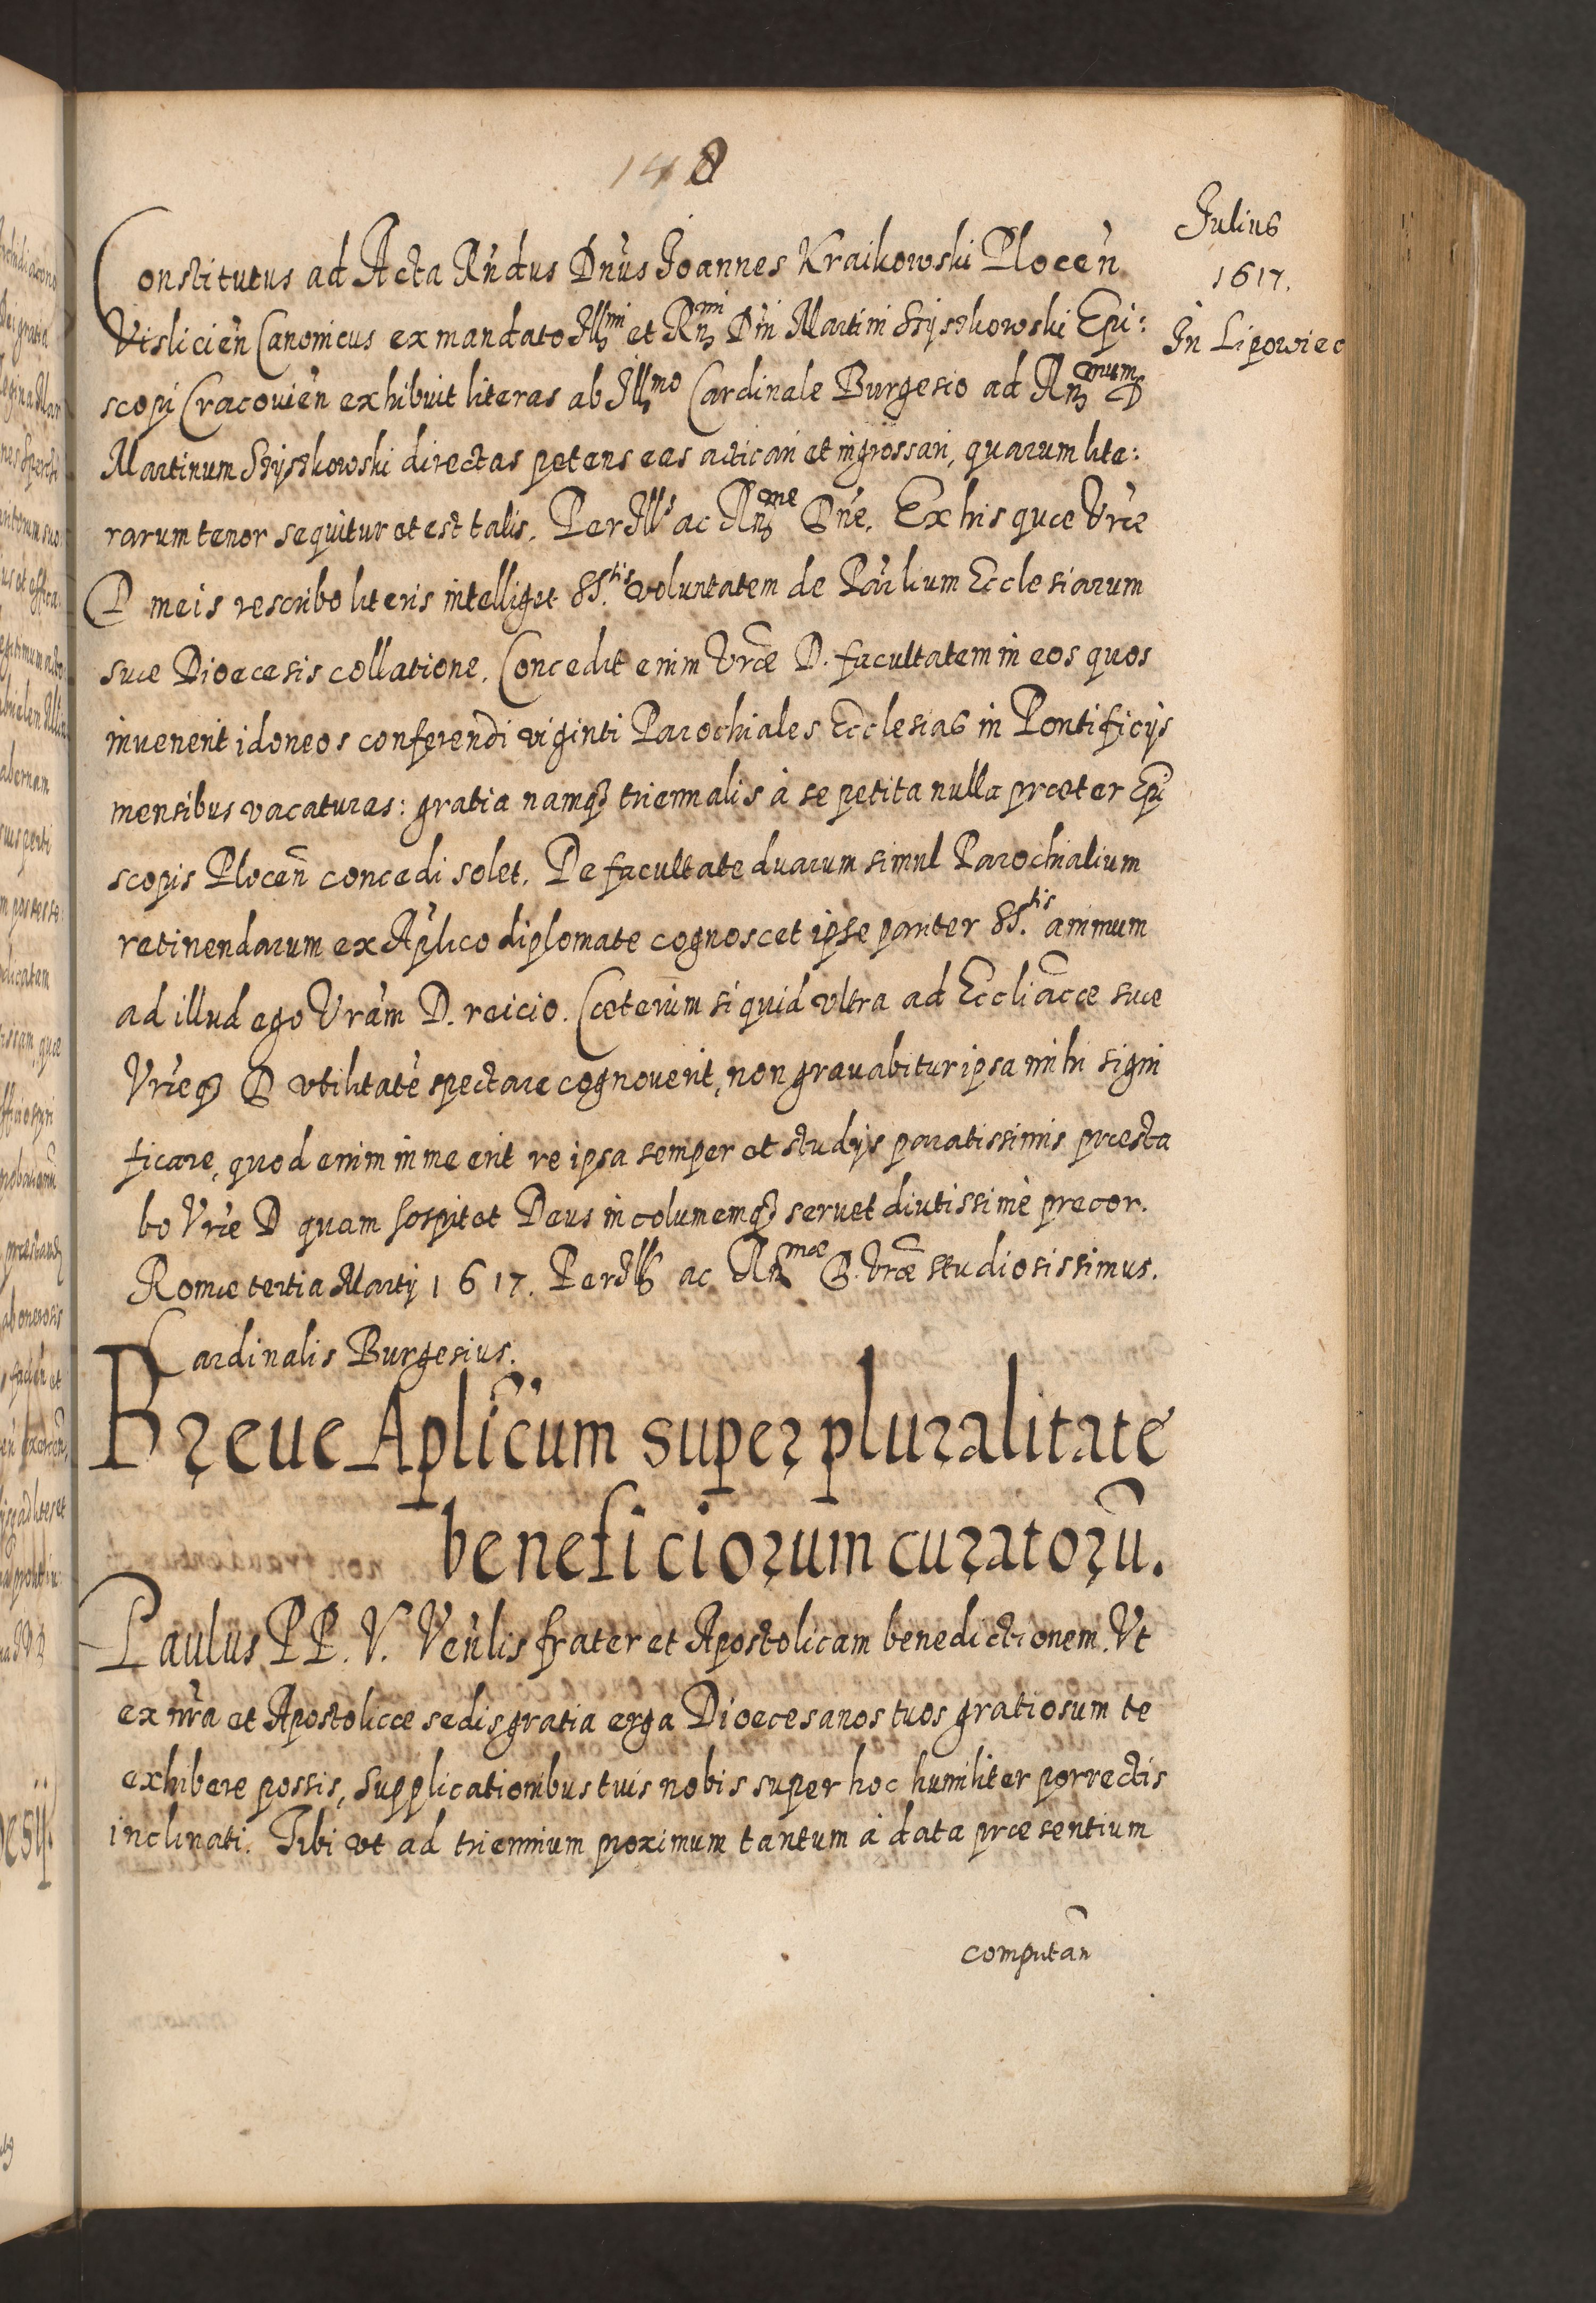 148
Julius
1617.
In Lipowiec
Constitutus ad Acta Rńdus Dńus Joannes Kraikowski Ploceń
Visliciéń Canonicus ex mandato Illmi et Rnmi Dńi Martini Szyszkowski Epi:
scopi Cracouień exhibuit literas ab Illmo Cardinale Burgesio ad Rnmum D
Martinum Szyszkowski directas petens eas acticari et ingrossari, quarum lite:
rarum tenor sequitur et est talis. Per Ills ac Rnme Dńe. Ex his quæ Vræ
D meis rescribo literis intelliget SS.tis voluntatem de Pãrlium Ecclesiarum
suæ Dioecesis collatione. Concedit enim Vræ D. facultatem in eos quos
inuenerit idoneos conferendi viginti Parochiales Ecclesias in Pontificijs
mensibus vacaturas: gratia namq3 triennalis à se petita nulla præter Epi
scopis Plocen̄ concedi solet. De facultate duarum simul Parochialium
retinendarum ex Aplico diplomate cognoscet ipse pariter SS.tis animum
ad illud ego Vrám D. reicio. Cæterum si quid vltra ad Eccliæ suæ
Vræq3 D vtilitatē spectare cognouerit, non grauabitur ipsa mihi signi
ficare, quod enim in me erit re ipsa semper et studijs paratissimis præsta
bo Vræ D quam sospitet Deus incolumemq3 seruet diutissimè precor.
Romæ tertia Martij 1617. Per Ills ac Rnmæ D. Vræ studiosissimus.
Cardinalis Burgesius.
Breue Aplīcum super pluralitate
beneficiorum curatorū.
Paulus PP. V. Veńlis frater et Apostolicam benedictionem. Vt
ex nrá et Apostolicæ sedis gratia erga Dioecesanos tuos gratiosum te
exhibere possis, supplicationibus tuis nobis super hoc humiliter porrectis
inclinati. Tibi vt ad triennium proximum tantum à data præsentium
computañ